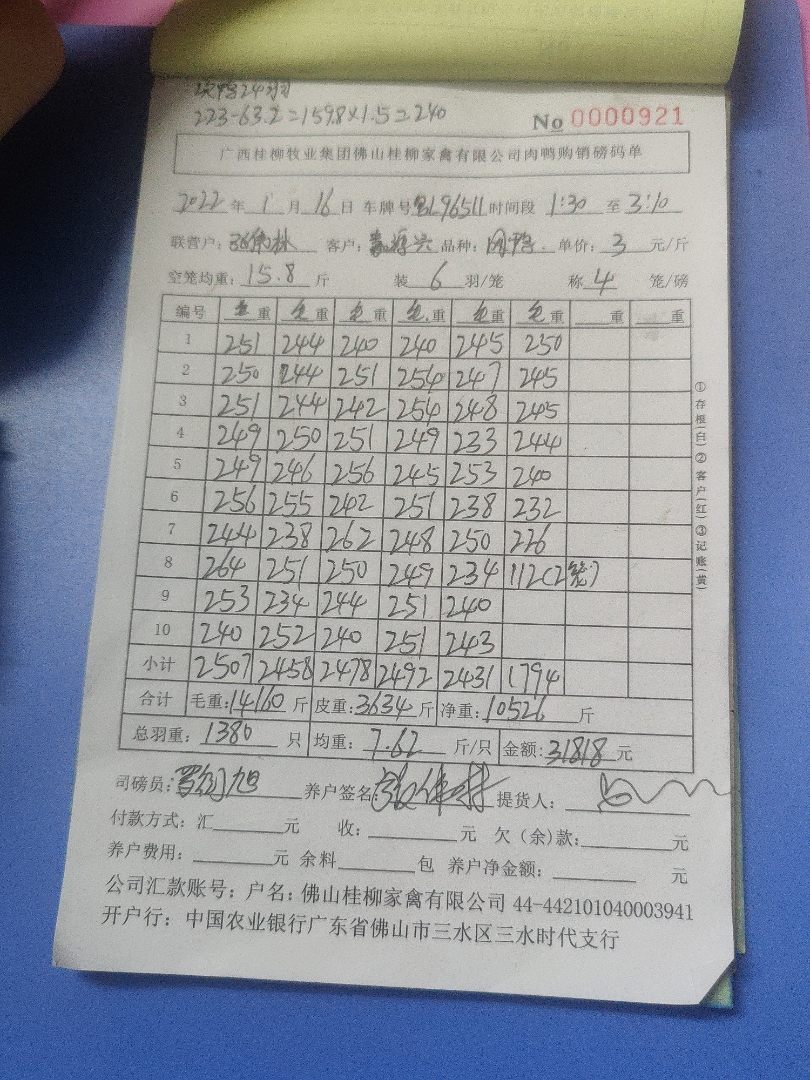 次鸭24羽
223-63.2=159.8×1.5=240
No 0000921
广西桂柳牧业集团佛山桂柳家禽有限公司肉鸭购销磅码单
2022 年 1 月 16 日 车牌号 L96511 时间段 1:30 至 3:10
联营户: 客户: 品种: 肉鸭. 单价: 3 元/斤
空笼均重: 15.8 斤 装 6 羽/笼 称 4 笼/磅
编号 毛重 毛重 毛重 毛重 毛重 毛重 重 重
1 251 244 240 240 245 250
2 250 244 251 254 247 245
3 251 244 242 254 248 245
4 249 250 251 249 233 244
5 249 246 256 245 253 240
6 256 255 242 251 238 232
7 244 238 262 248 250 226
8 264 251 250 249 234 112(2笼)
9 253 234 244 251 240
10 240 252 240 251 243
小计 2507 2458 2478 2492 2431 1794
合计 毛重: 14160 斤 皮重: 3634 斤 净重: 10526 斤
总羽重: 1380 只 均重: 7.62 斤/只 金额: 31818 元
司磅员: 养户签名: 提货人:
付款方式: 汇 元 收: 元 欠(余)款: 元
养户费用: 元 余料 包 养户净金额: 元
公司汇款账号: 户名: 佛山桂柳家禽有限公司 44-442101040003941
开户行: 中国农业银行广东省佛山市三水区三水时代支行
①存根(白)②客户(红)③记账(黄)